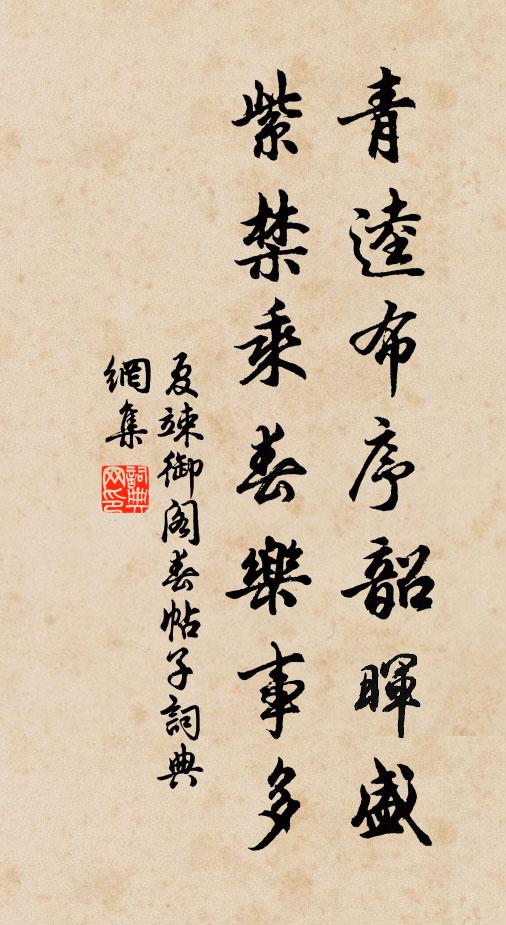 青逵布序韶暉盛
紫禁乘春樂事多
夏竦御閣春帖子詞典
網集
詞典
网印